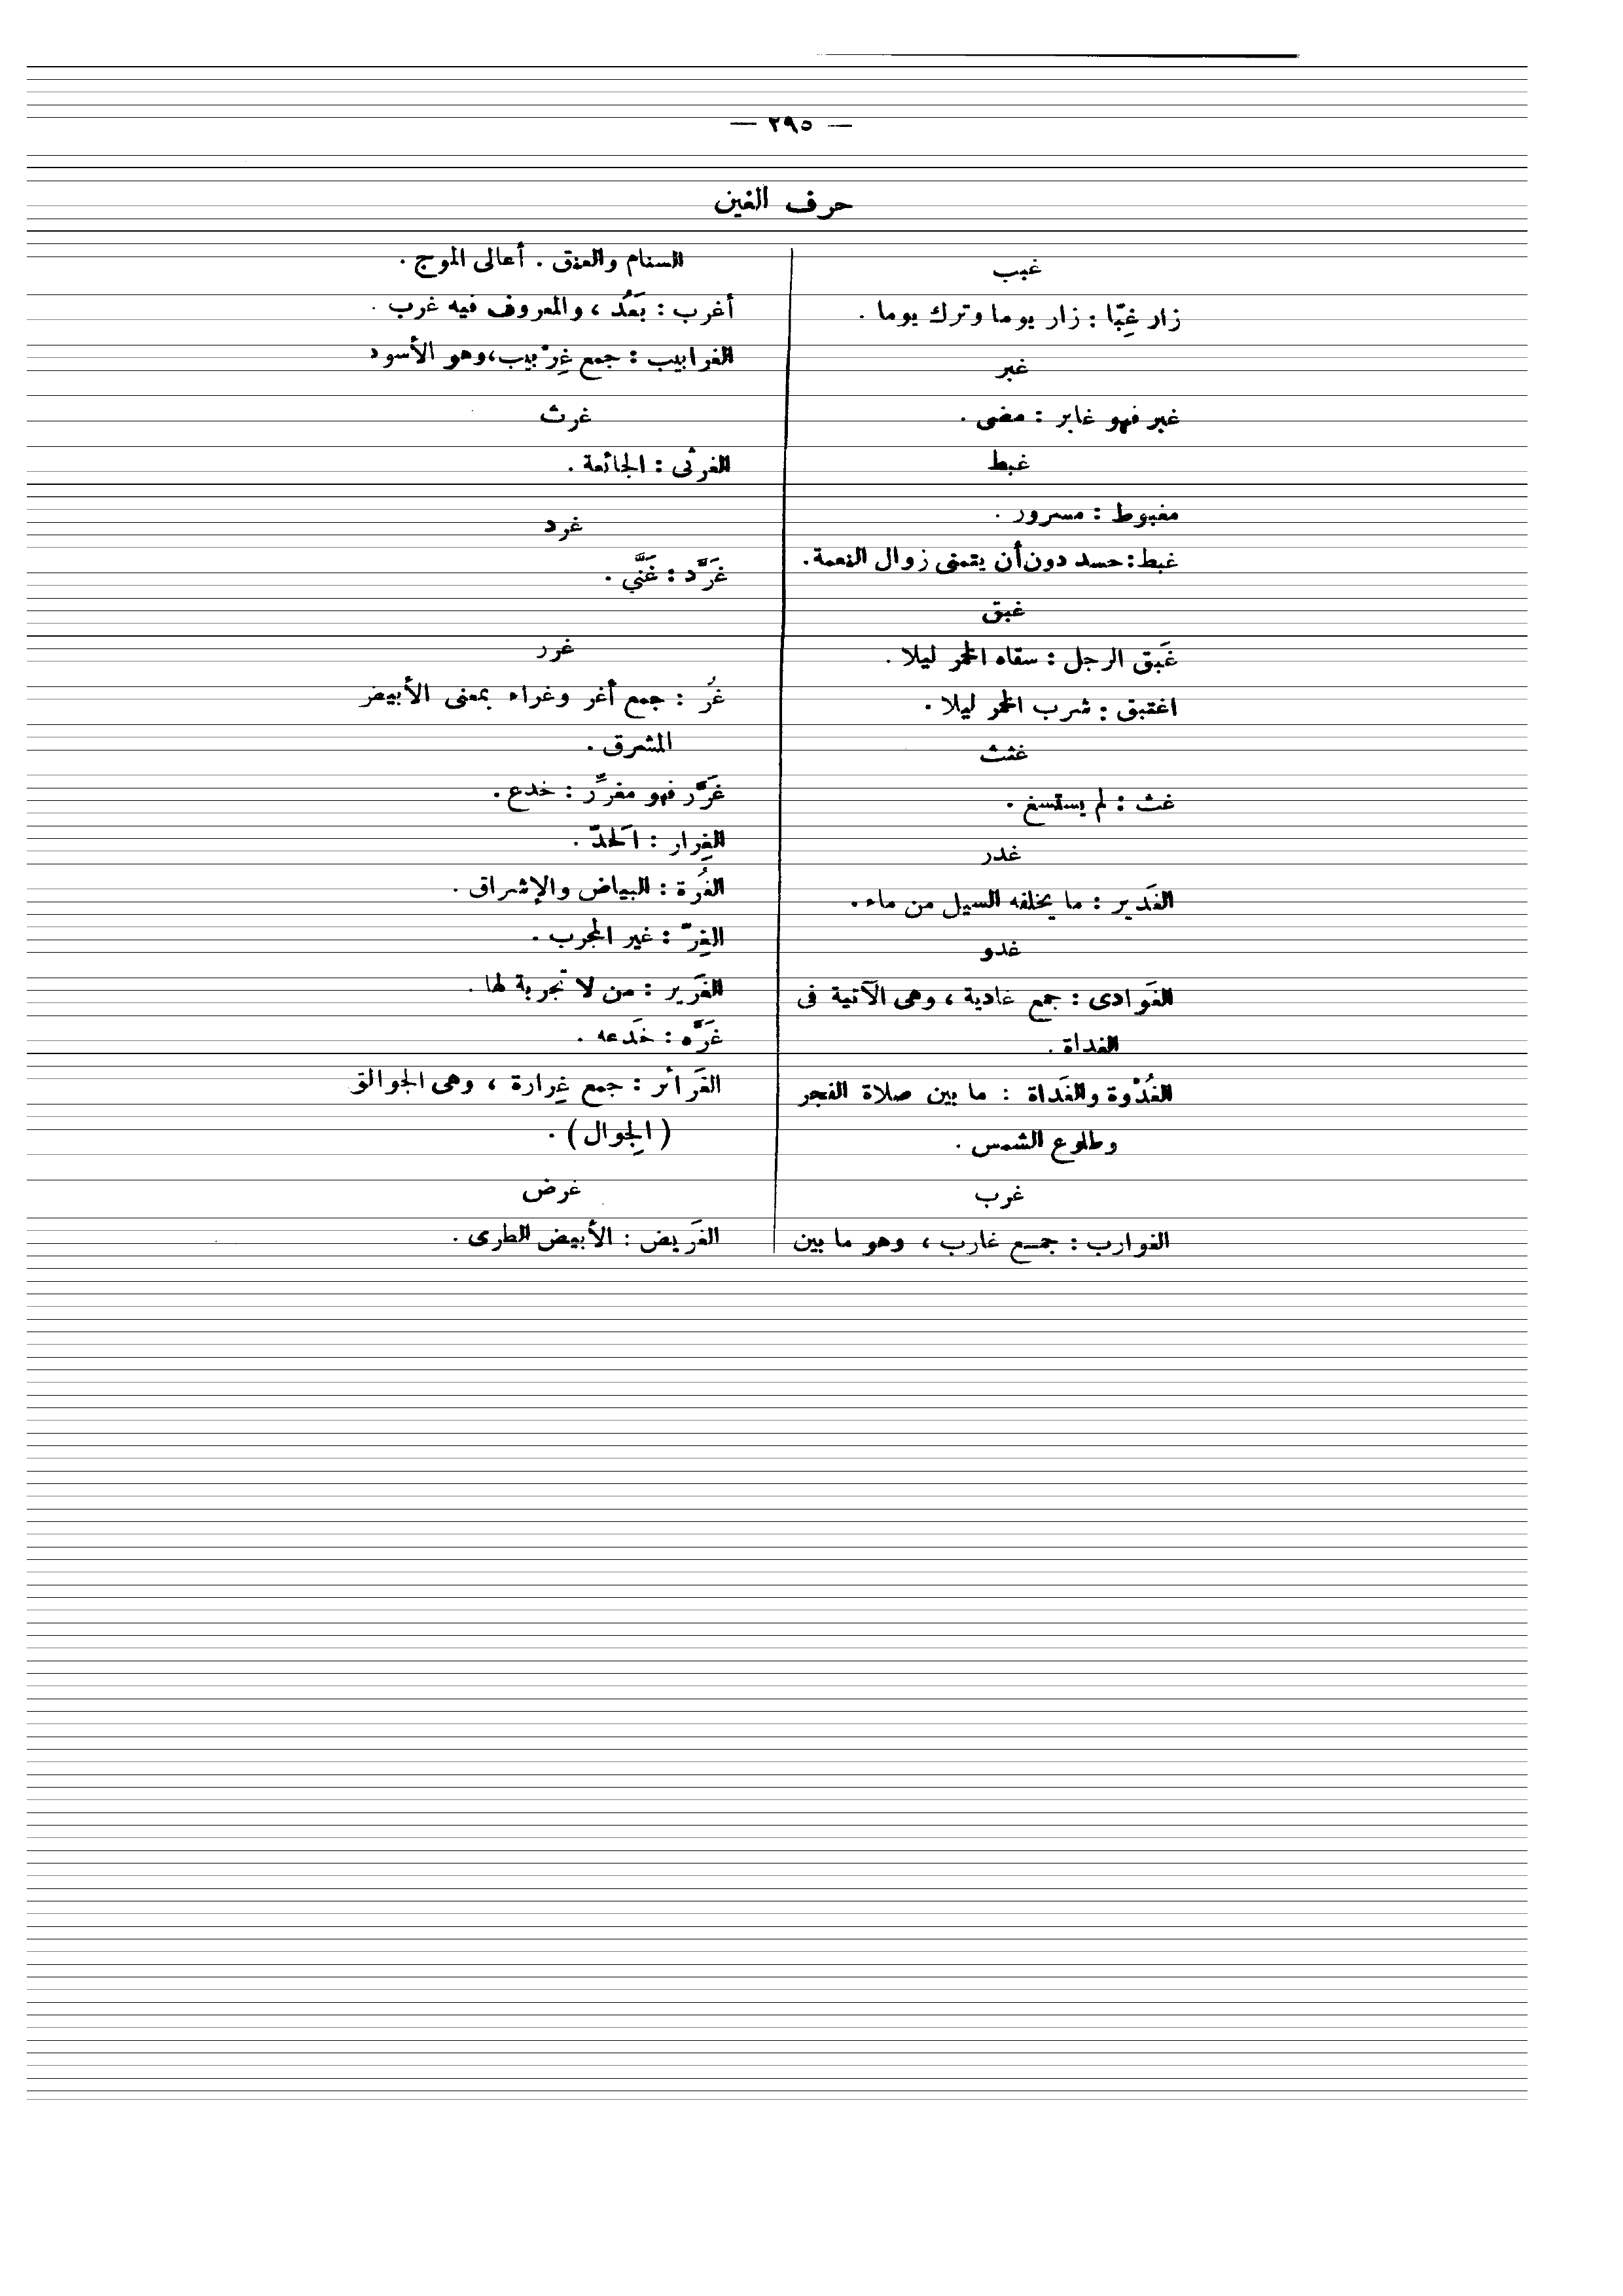 — ٢٩٥ —
حرف الغين
غبب
زار غِبّا : زار يوما وترك يوما .
غبر
غبر فهو غابر : مضى .
غبط
مغبوط : مسرور .
غبط : حسد دون أن يتمنى زوال النعمة .
غبق
غَبق الرجل : سقاه الخمر ليلا .
اغتبق : شرب الخمر ليلا .
غثث
غث : لم يستسغ .
غدر
الغَدير : ما يخلفه السيل من ماء .
غدو
الغَوادى : جمع غادية ، وهى الآتية فى
الغداة .
الغُدْوة والغَداة : ما بين صلاة الفجر
وطلوع الشمس .
غرب
الغوارب : جمع غارب ، وهو ما بين
السنام والعنق . أعالى الموج .
أغرب : بَعُد ، والمعروف فيه غرب .
الغرابيب : جمع غِرْبيب ، وهو الأسود
غرث
الغرثى : الجائعة .
غرد
غَرَّد : غَنَّي .
غرر
غُر : جمع أغر وغراء بمعنى الأبيض
المشرق .
غَرَّر فهو مغرِّر : خدع .
الغِرار : الَحدّ .
الغُرة : البياض والإشراق .
الغِرّ : غير المجرب .
الغَرير : من لا تجربة لها .
غَرَّه : خَدعه .
الغَرائر : جمع غِرارة ، وهى الجوالق
( الجِوال ) .
غرض
الغَريض : الأبيض الطرى .